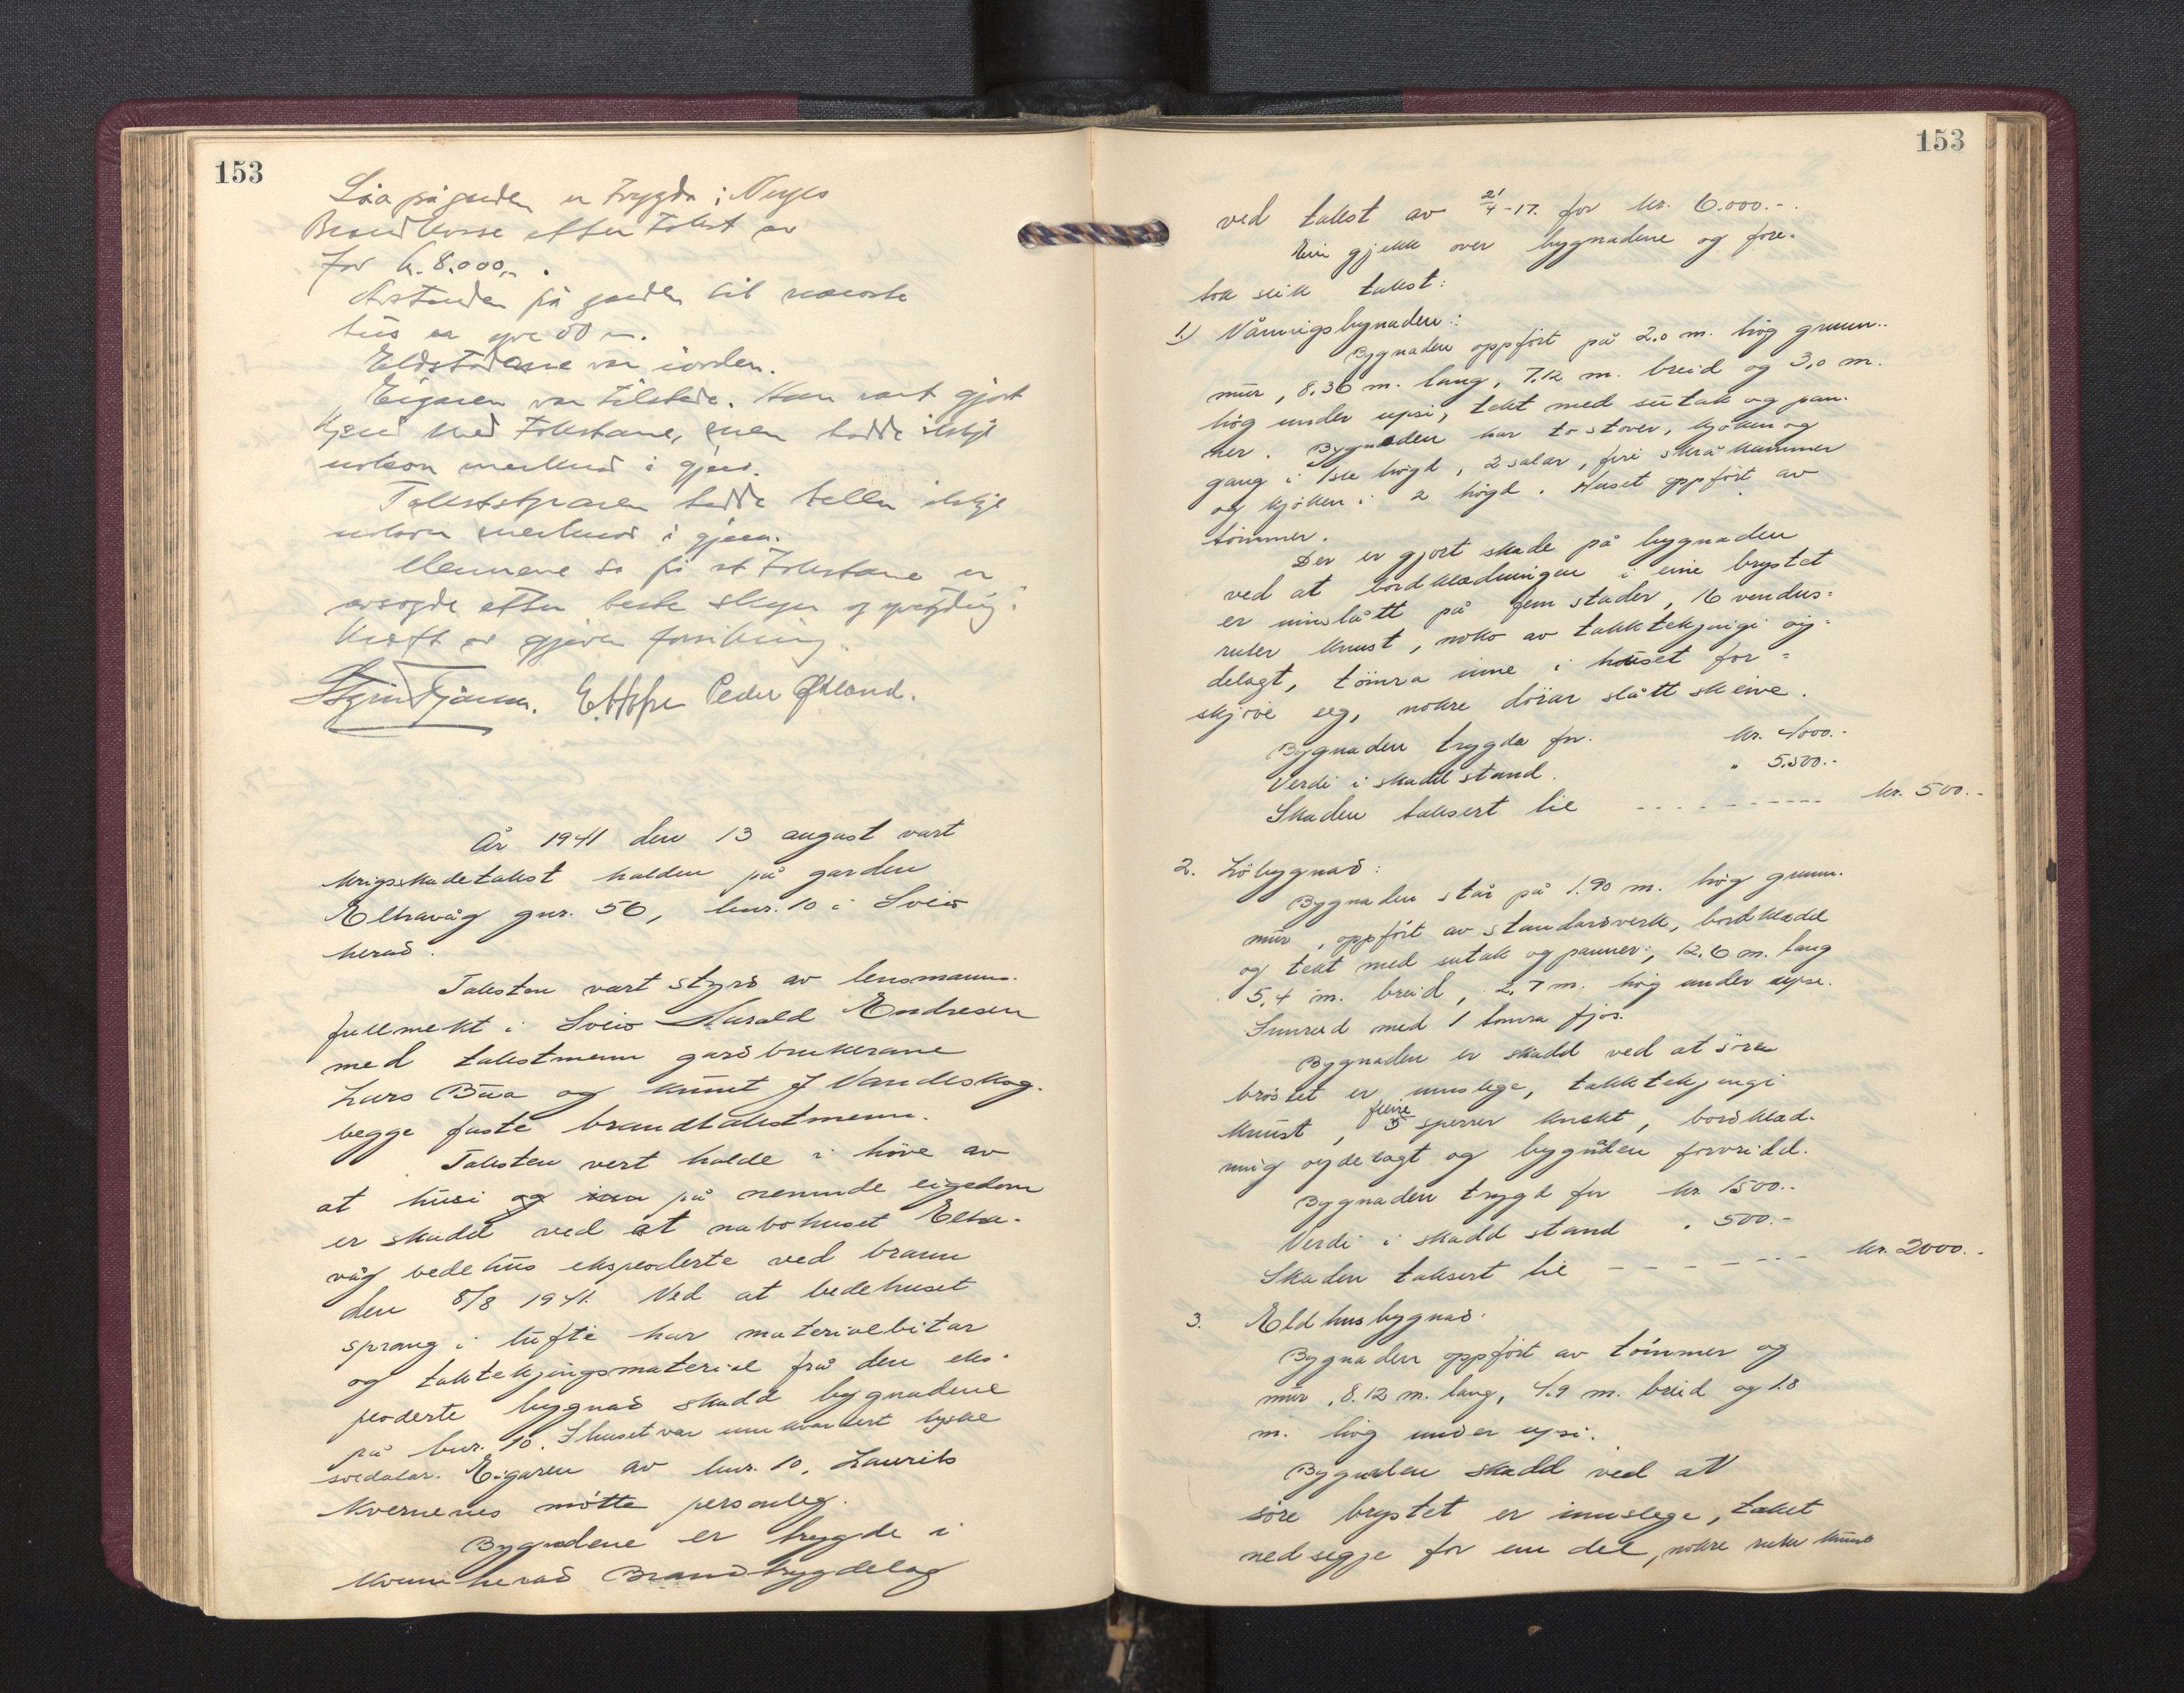 153
Löa på garden er trygda i Noregs
Brandkasse etter takst av
for kr. 8.000,- .
Avstanden på garden til næraste
hus er yve 50 m.
Eldstadene var i orden.
Eigaren var tilstede. Han vart gjort
kjend med takstane, men hadde ikkje
nokon merknad i gjera.
Takststyraren hadde heller ikkje
nokon merknad i gjera.
Mennene sa frå at takstane er
avsagde etter beste skjyn og yvertyding i
kraft av gjeven forsikring.
Peder Økland.
År 1941 den 13 august vart
krigsskadetakst halden på garden
Elhavåg gnr. 56, bnr. 10 i Sveio
herad.
Taksten vart styrd av lensmanns-
fullmekt i Sveio Harald Endresen
med takstmenn gardbrukerane
Lars Bua og Knut J Vandeskog.
begge faste brandtakstmenn.
Taksten vert halde i höve av
at husi og på nemnde eigedom
er skadd ved at nabohuset Elha-
våg bedehus eksploderte ved brann
den 8/8 1941. Ved at bedehuset
sprang i lufti har materialbitar
og taktekjingsmaterial frå den eks-
ploderte bygnad skadd bygnadene
på bnr. 10. I huset var innkvartert tyske
soldatar. Eigaren av bnr. 10, Laurits
Kvernenes mötte personleg.
Bygnadene er trygde i
Kvinnherad Brandtrygdelag
153
ved takst av 21/4-17. for kr. 6.000.-.
Ein gjekk over bygnadene og fore-
tok slik takst:
1.) Våningsbygnaden:
Bygnaden oppfört på 2.0 m. hög grunn-
mur, 8.36 m. lang, 7.12 m. breid og 3,0 m.
hög under upsi, tekt med sutak og pan-
ner. Bygnaden har to stover, kjöken og
gang i 1ste högd, 2 salar, fire skråkammer
og kjöken i 2 högd. Huset oppfört av
tömmer.
Der er gjort skade på bygnaden
ved at bordklædningen i eine brystet
er innslått på fem stader, 16 vendus-
ruter knust, noko av takktekjingi öy-
delagt, tömra inne i huset for-
skjöve seg, nokre dörar slått skeive.
Bygnaden trygda for. kr. 4000.-
Verdi i skadd stand. " 5.500.-
Skaden taksert til - - - - - - - - - - kr. 500.-
2. Löbygnad:
Bygnaden står på 1.90 m. hög grunn-
mur, oppfört av standardverk, bordklædd
og tekt med sutak og panner, 12.6 m. lang
5,4 m. breid, 2,7 m. hög under upse.
Innreid med 1 tomra fjös.
Bygnaden er skadd ved at söre
bröstet er innslege, takktekjingi
knust, fleire 5 sperrer knekt, bordklæd-
ning öydelagt og bygnaden forvridd.
Bygnaden trygd for kr. 1500.-
Verdi i skadd stand " 500.-
Skaden taksert til - - - - - - - kr. 2000.-
3. Eldhusbygnad.
Bygnaden oppfört av tömmer og
mur, 8.12 m. lang, 4.9 m. breid og 1.8
m. hög under upsi.
Bygnaden skadd ved at
söre brystet er innslege, taket
nedsegje for ein del, nokre ruter knust